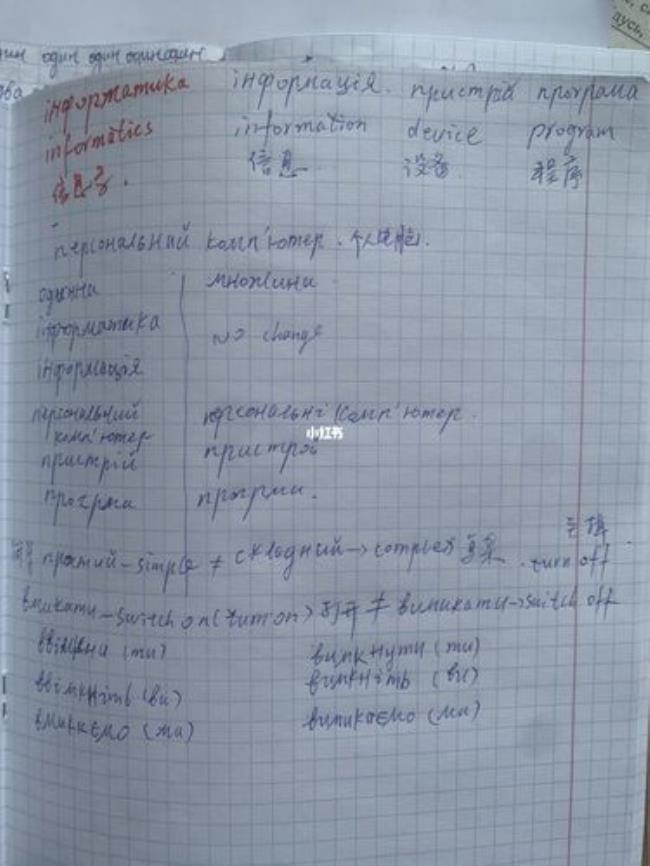 один один один один
інформатика інформація. пристрій програма
informatics information device program
信息 信息 设备 程序
персональний комп'ютер.
однина множина
інформатика no change
інформація
персональний персональні комп'ютер.
комп'ютер
пристрій пристрої
小红书
прогрма прогрми.
关掉
простий - simple ≠ складний → complex 复杂 . turn off
вмикати - switch on (turn on) 打开 ≠ вимикати → switch off
(ти) вимкнути (ти)
ввімкніть (ви) вимкніть (ви)
вмикаємо (ми) вимикаємо (ми)